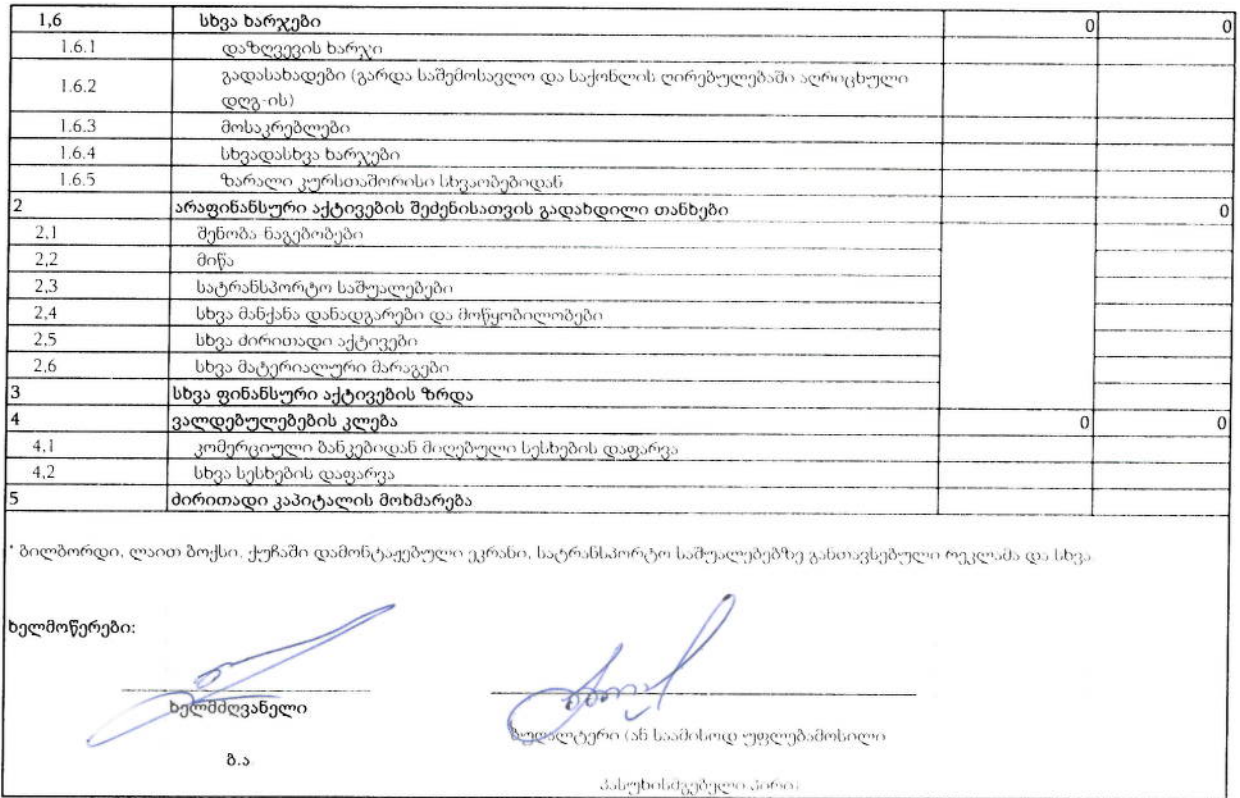 1,6 სხვა ხარჯები 0 0
1.6.1 დაზღვევის ხარჯი
1.6.2 გადასახადები (გარდა საშემოსავლო და საქონლის ღირებულებაში აღრიცხული
დღგ-ის)
1.6.3 მოსაკრებლები
1.6.4 სხვადასხვა ხარჯები
1.6.5 ზარალი კურსთაშორისი სხვაობებიდან
2 არაფინანსური აქტივების შეძენისათვის გადახდილი თანხები 0
2,1 შენობა ნაგებობები
2,2 მიწა
2,3 სატრანსპორტო საშუალებები
2,4 სხვა მანქანა დანადგარები და მოწყობილობები
2,5 სხვა ძირითადი აქტივები
2,6 სხვა მატერიალური მარაგები
3 სხვა ფინანსური აქტივების ზრდა
4 ვალდებულებების კლება 0 0
4.1 კომერციული ბანკებიდან მიღებული სესხების დაფარვა
4.2 სხვა სესხების დაფარვა
5 ძირითადი კაპიტალის მოხმარება
* ბილბორდი, ლაით ბოქსი, ქუჩაში დამონტაჟებული ეკრანი, სატრანსპორტო საშუალებებზე განთავსებული რეკლამა და სხვა
ხელმოწერები:
ხელმძღვანელი
ბუღალტერი (ან საამისოდ უფლებამოსილი
ბ.ა
პასუხისმგებელი პირი)